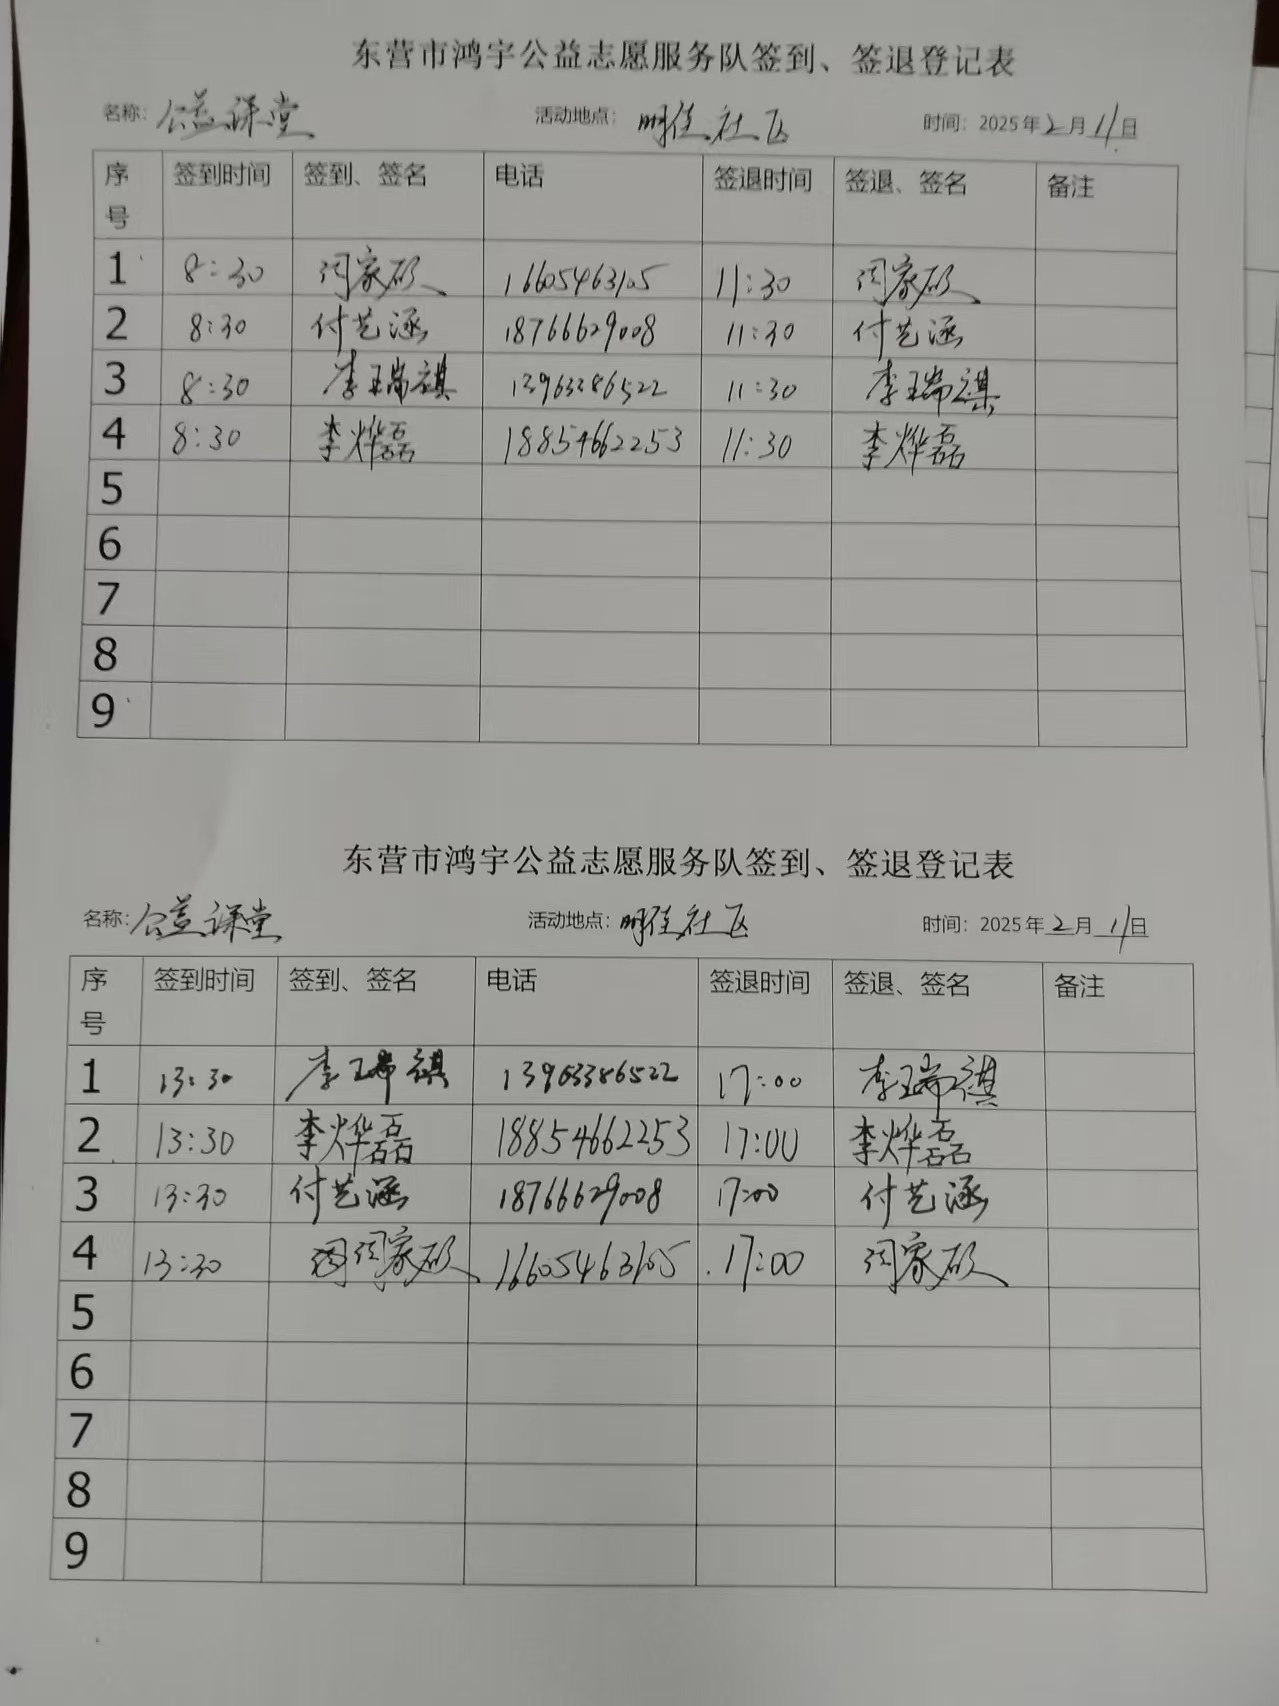 东营市鸿宇公益志愿服务队签到、签退登记表
名称：公益课堂 活动地点：明佳社区 时间：2025年2月11日
序号 签到时间 签到、签名 电话 签退时间 签退、签名 备注
1 8:30 闫家硕 16605463105 11:30 闫家硕
2 8:30 付艺涵 18766629008 11:30 付艺涵
3 8:30 李瑞祺 13963386522 11:30 李瑞祺
4 8:30 李烨磊 18854662253 11:30 李烨磊
5
6
7
8
9
东营市鸿宇公益志愿服务队签到、签退登记表
名称：公益课堂 活动地点：明佳社区 时间：2025年2月11日
序号 签到时间 签到、签名 电话 签退时间 签退、签名 备注
1 13:30 李瑞祺 13963386522 17:00 李瑞祺
2 13:30 李烨磊 18854662253 17:00 李烨磊
3 13:30 付艺涵 18766629008 17:00 付艺涵
4 13:30 闫家硕 16605463105 17:00 闫家硕
5
6
7
8
9